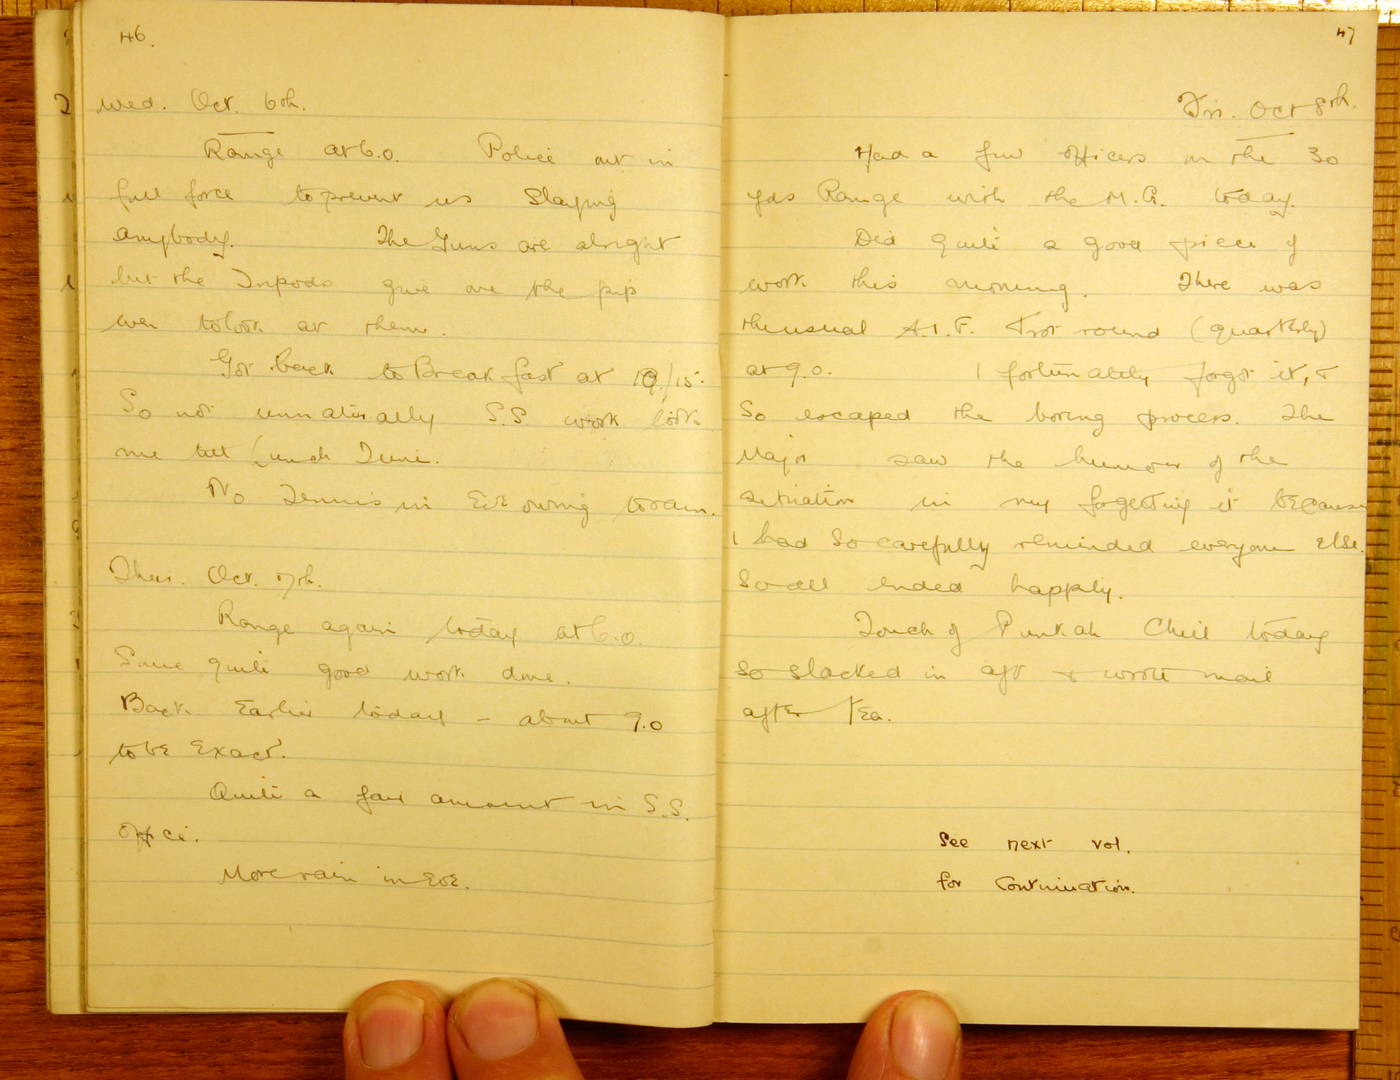 46.
Wed. Oct. 6th.
Range at 6.0. Police out in
full force to prevent us Slaying
anybody. The Guns are alright
but the Tripods give me the pip
even to look at them.
Got back to Breakfast at 10/15.
So not unnaturally S.S work took
me till Lunch Time.
No Tennis in Eve owing to rain.
Thur. Oct. 7th.
Range again today at 6.0.
Some quite good work done.
Back Earlier today - about 9.0
to be Exact.
Quite a fair amount in S.S.
office.
More rain in Eve.
47
Fri. Oct 8th.
Had a few officers on the 30
yds Range with the M.G. today.
Did quite a good piece of
work this morning. There was
the usual A.I.F. Trot round (quarterly)
at 9.0. I fortunately forgot it, &
So escaped the boring process. The
Major saw the humour of the
situation in my forgetting it because
I had So carefully reminded everyone Else.
So all ended happily.
Touch of Punkah Chill today
so slacked in aft & wrote mail
after Tea.
See next vol.
for Continuation.